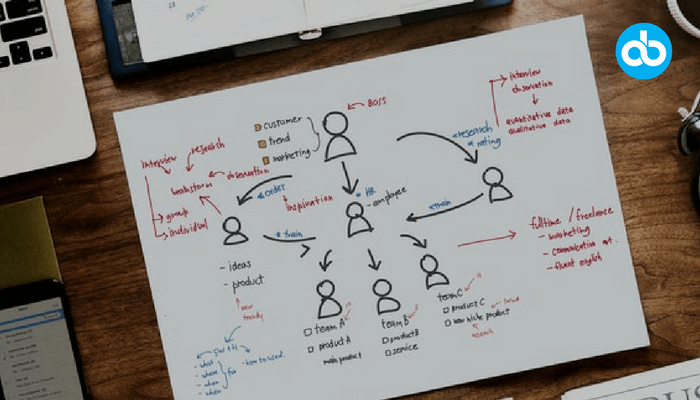 ab
BOSS
customer
trend
marketing
interview
observation
quantitative data
qualitative data
research
rating
interview
research
brainstorm
observation
group
individual
order
inspiration
HR
- employee
train
train
- ideas
- product
new
trendy
fulltime / freelance
- marketing
- communication
- fluent english
team A
product A
main product
team B
product B
service
team C
product C
new niche product
trend
research
- what
- where
- when
for
- how to used